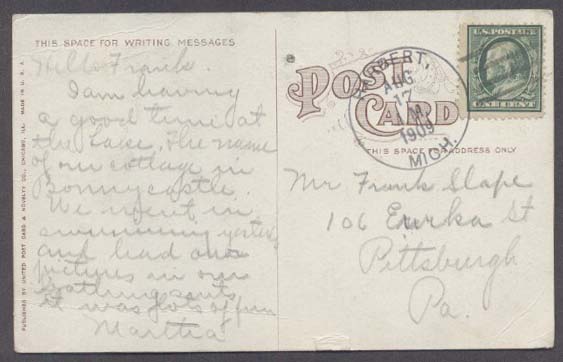 THIS SPACE FOR WRITING MESSAGES
Hello Frank.
I am having
a good time at
the Lake. The name
of our cottage is
Bonnycastle.
We went in
swimming yesterday
and had our
pictures in our
bathing suits
it was lots of fun
Martha
PUBLISHED BY UNITED POST CARD & NOVELTY CO., CHICAGO, ILL. MADE IN U. S. A.
POST
CARD
THIS SPACE FOR ADDRESS ONLY
AUG
17
1909
MICH.
U.S. POSTAGE
ONE CENT
Mr Frank Slape
106 Eurka St
Pittsburgh
Pa.